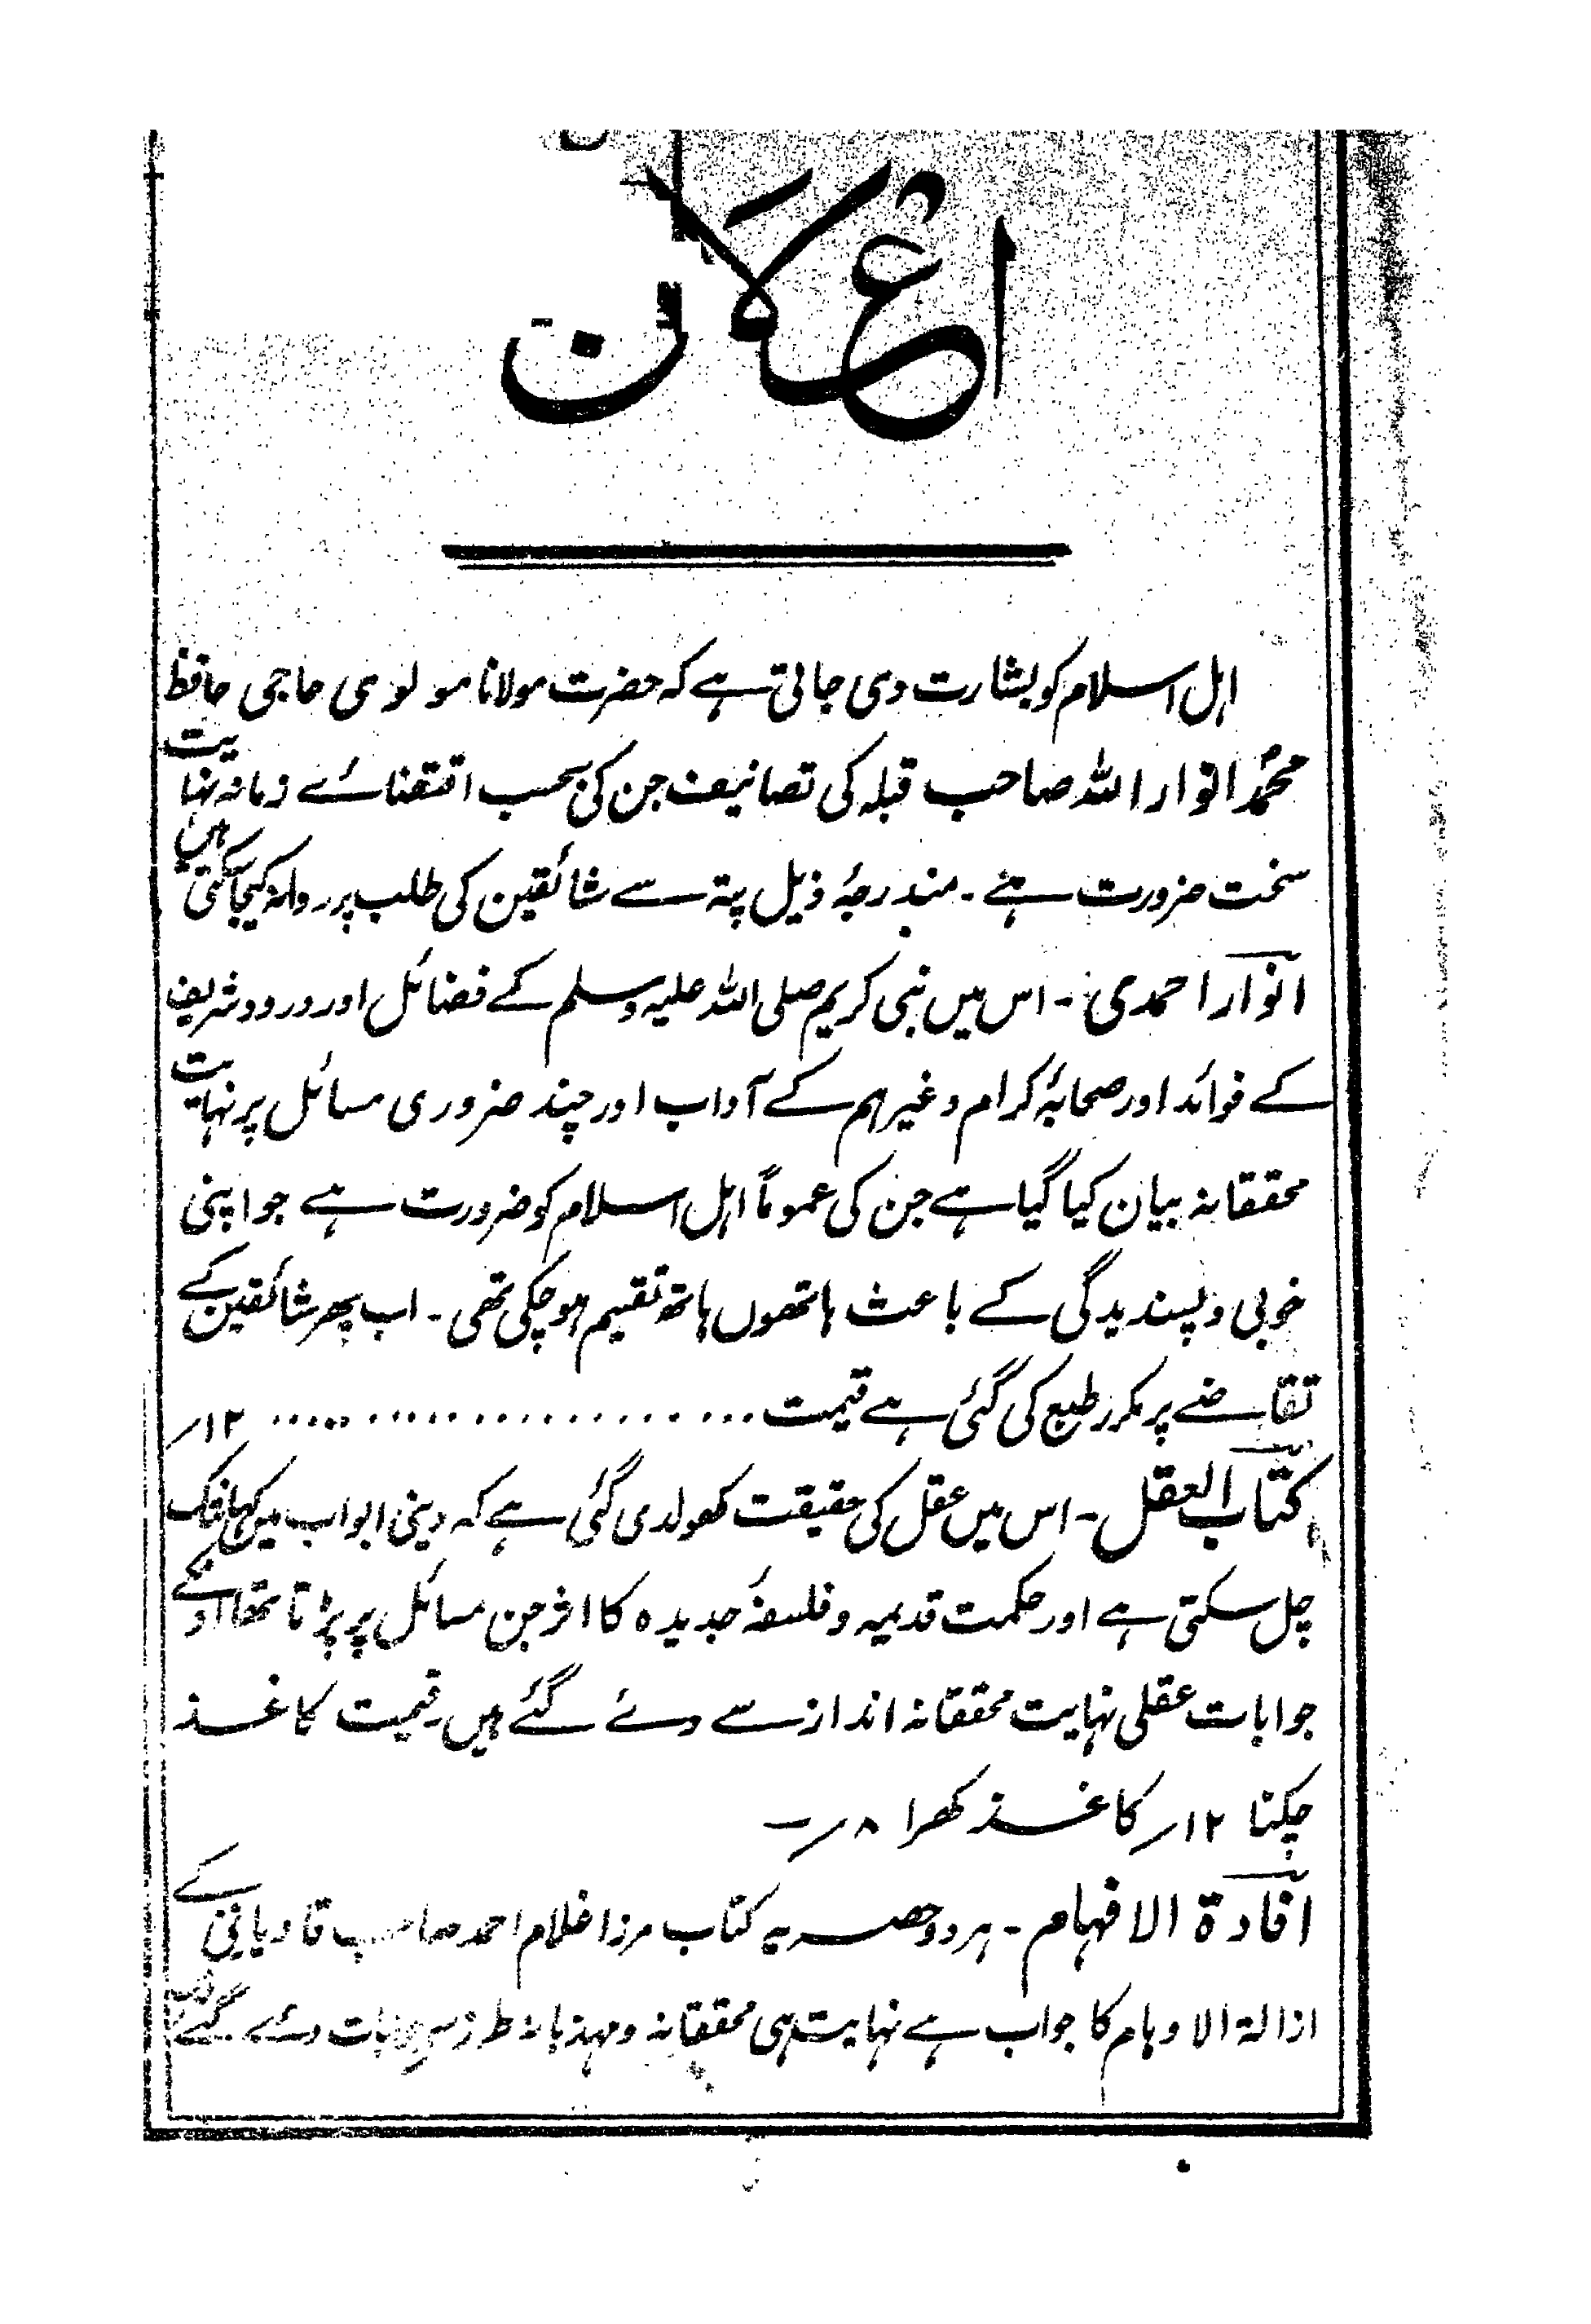 اعلان
اہل اسلام کو بشارت دی جاتی ہے کہ حضرت مولانا مولوی حاجی حافظ
محمد انوار اللہ صاحب قبلہ کی تصانیف جن کی بحسب اقتضائے زمانہ نہایت
سخت ضرورت ہے ۔ مندرجۂ ذیل پتہ سے شائقین کی طلب پر روانہ کیجاسکتی ہیں
انوار احمدی ۔ اس میں نبی کریم صلی اللہ علیہ وسلم کے فضائل اور درود شریف
کے فوائد اور صحابۂ کرام وغیرہم کے آداب اور چند ضروری مسائل پر نہایت
محققانہ بیان کیا گیا ہے جن کی عموماً اہل اسلام کو ضرورت ہے جو اپنی
خوبی و پسندیدگی کے باعث ہاتھوں ہاتھ تقیم ہوچکی تھی ۔ اب پھر شائقین کے
تقاضے پر مکرر طبع کی گئی ہے قیمت ........................ ۱۲؍
کتاب العقل ۔ اس میں عقل کی حقیقت کھولدی گئی ہے کہ دینی ابواب میں کہانتک
چل سکتی ہے اور حکمت قدیمہ و فلسفۂ جدیدہ کا اثر جن مسائل پر پڑتا تھا اونکے
جوابات عقلی نہایت محققانہ انداز سے دئے گئے ہیں قیمت کاغذ
چکنا ۱۲؍ کاغذ کھرا ۸؍
افادۃ الافہام ۔ ہر دو حصہ یہ کتاب مرزا غلام احمد صاحب قادیانی کے
ازالۃ الاوہام کا جواب ہے نہایت ہی محققانہ و مہذبانہ طرز پر جوابات دئے گئے